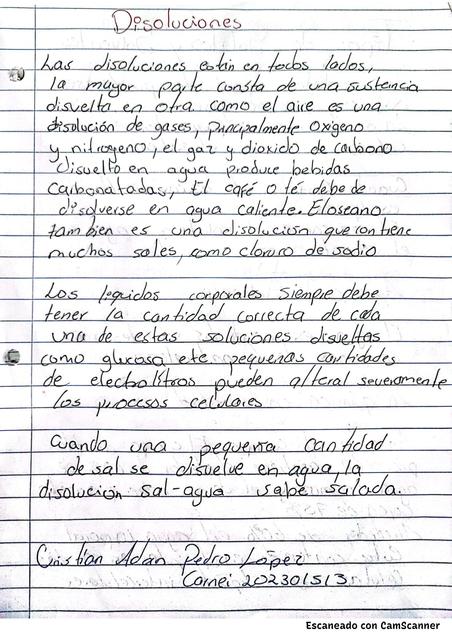 Disoluciones
Las disoluciones están en todos lados,
la mayor parte consta de una sustencia
disuelta en otra como el aire es una
disolución de gases, principalmente oxigeno
y nitrogeno, el gar y dioxido de carbono
disuelto en agua produce bebidas
carbonatadas, El café o té debe de
disolverse en agua caliente. El oseano
tambien es una disolucion que contiene
muchos sales, como cloruro de sodio
Los liquidos corporales siempre debe
tener la cantidad correcta de cada
una de estas soluciones disueltas
como glucosa etc. pequenas cantidades
de electrolitros pueden alteral severamente
los procesos celulares
Cuando una pequeña cantidad
de sal se disuelve en agua, la
disolución sal-agua sabe salada.
Cristian Adán Pedro López
Carnei 202301513
Escaneado con CamScanner